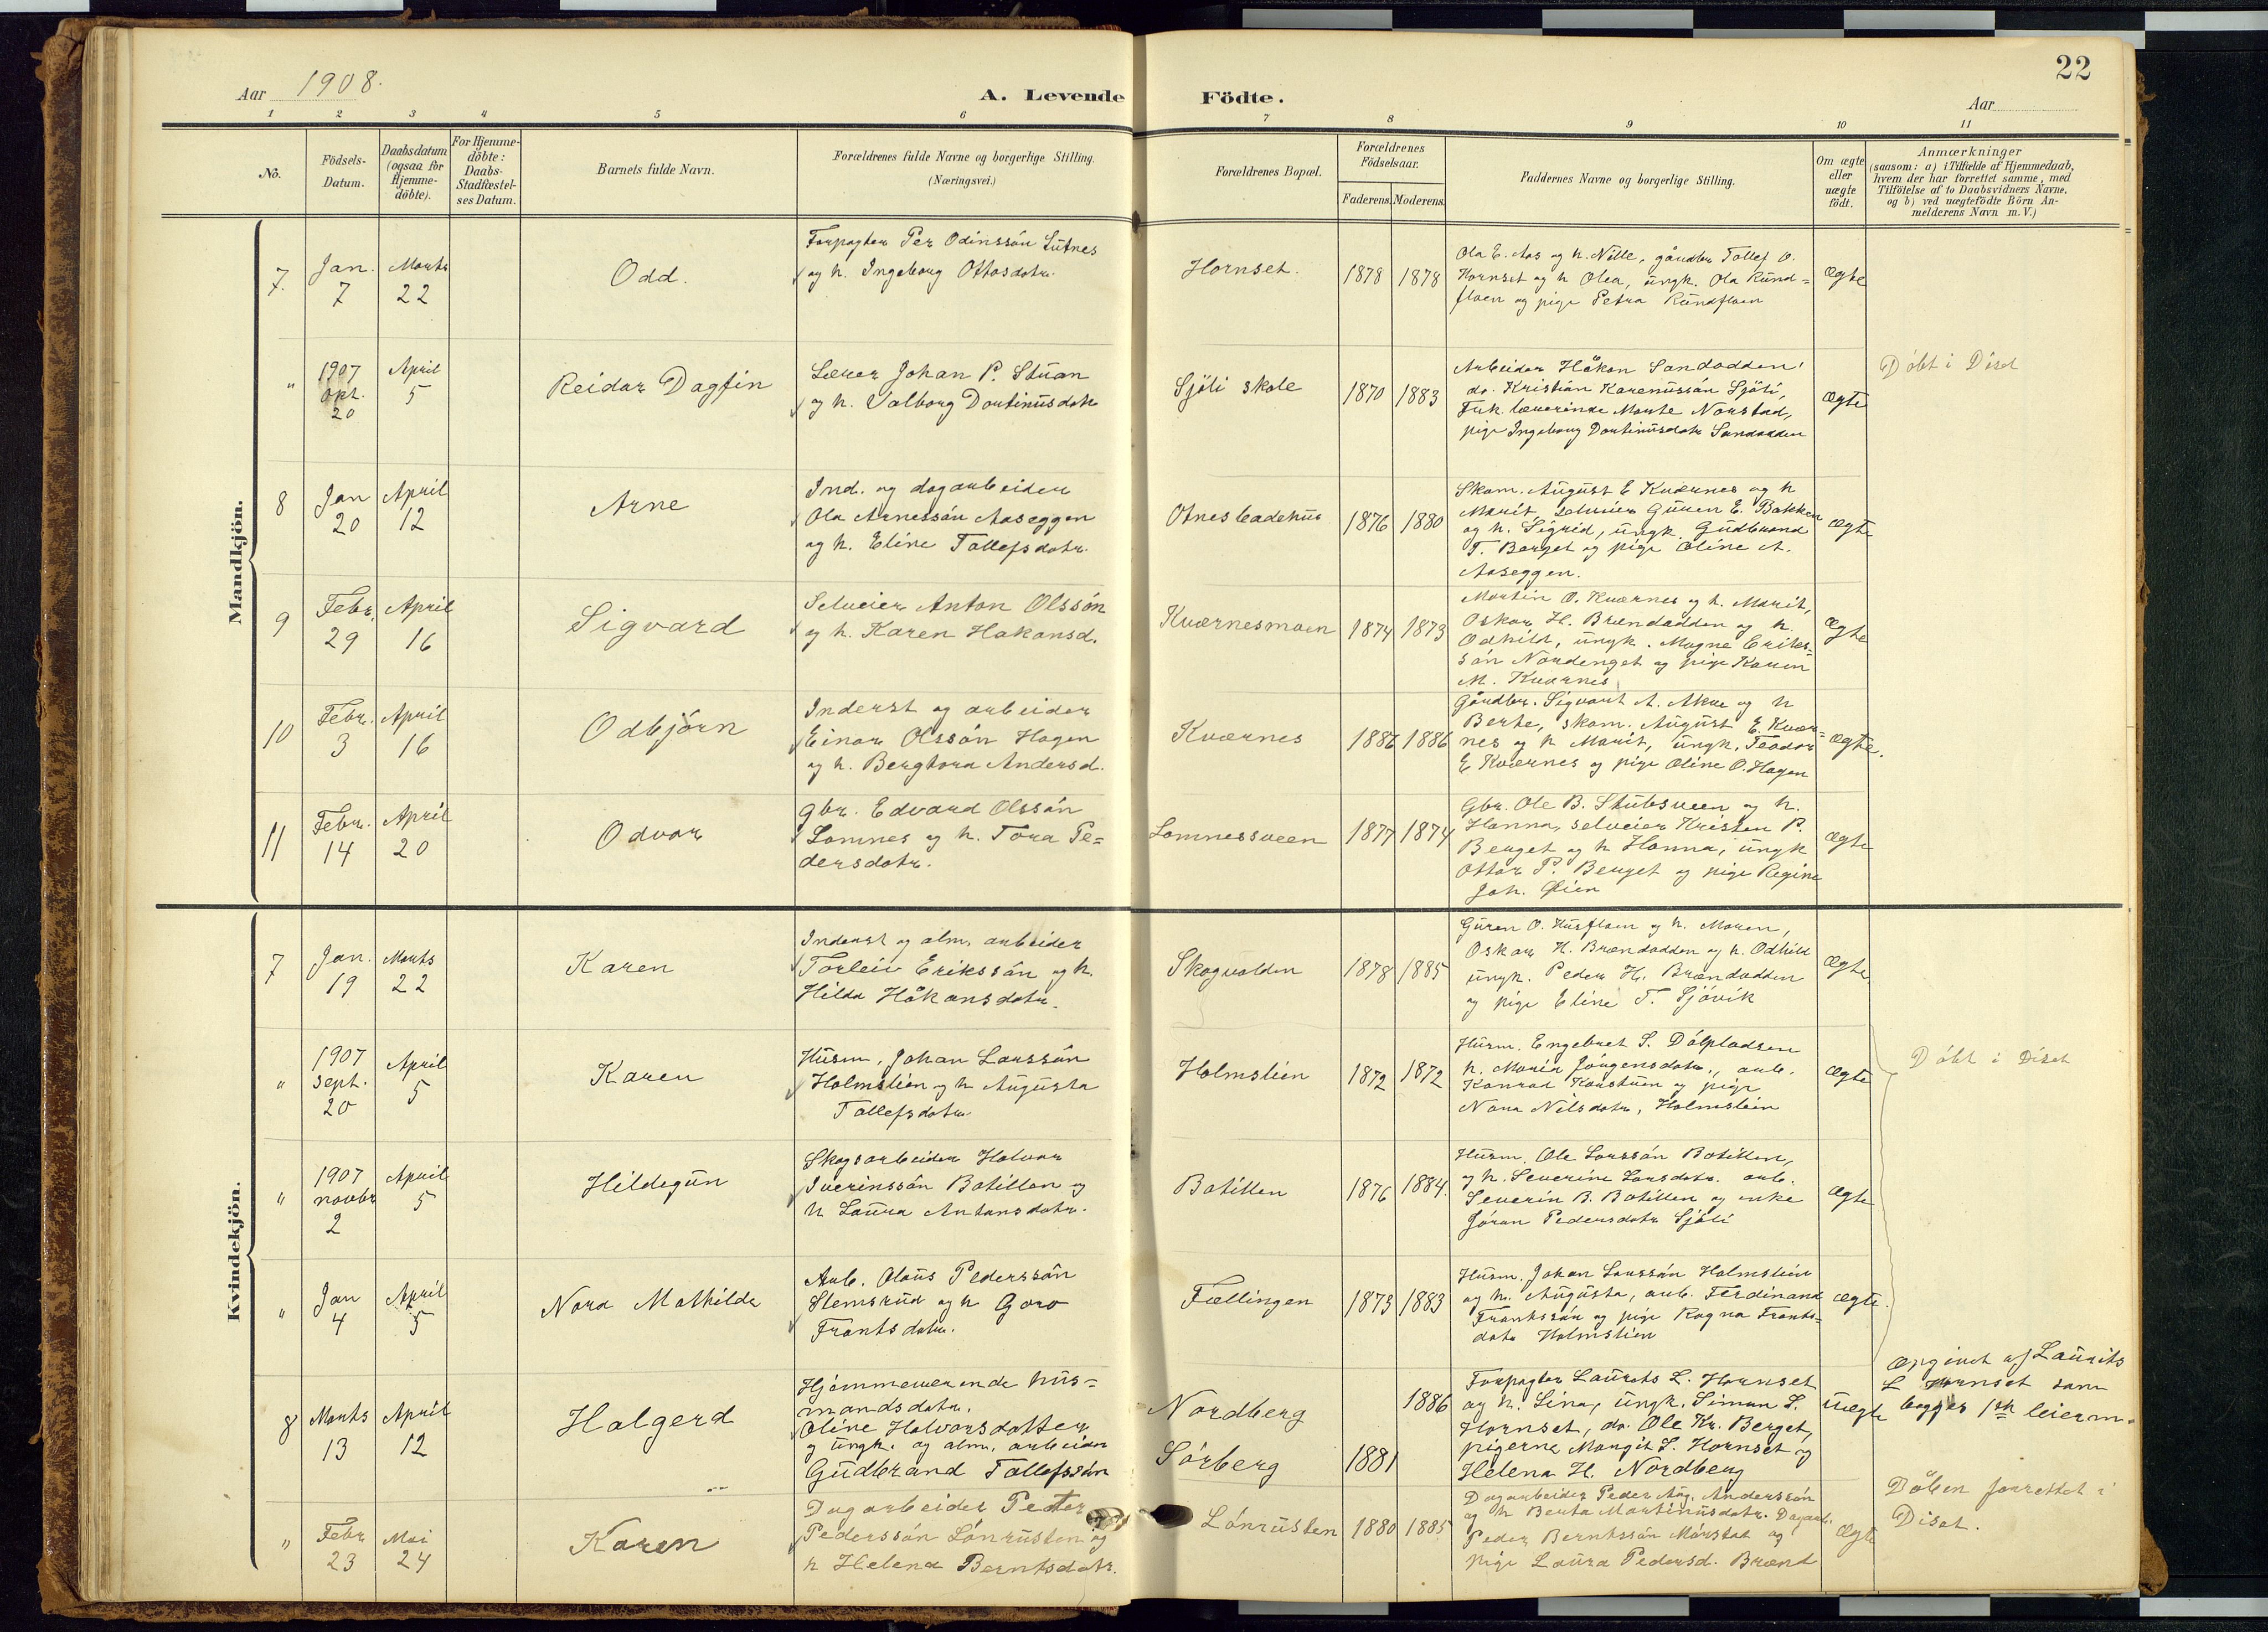 22
Aar 1908.
A. Levende Födte.
Aar
1 2 3 4 5 6 7 8 9 10 11
No.
Födsels-
Datum.
Daabsdatum
(ogsaa for
Hjemme-
döbte).
For Hjemme-
döbte:
Daabs-
Stadfæstel-
ses Datum.
Barnets fulde Navn.
Forældrenes fulde Navne og borgerlige Stilling.
(Næringsvei.)
Forældrenes Bopæl.
Forældrenes
Födselsaar.
Faderens. Moderens.
Faddernes Navne og borgerlige Stilling.
Om ægte
eller
uægte
födt.
Anmærkninger
(saasom: a) i Tilfælde af Hjemmedaab,
hvem der har forrettet samme, med
Tilföielse af to Daabsvidners Navne,
og b) ved uægtefödte Börn An-
melderens Navn m.V.)
Mandkjön.
7.
Jan.
7
Marts
22
Odd.
Forpagter Per Odinssön Lutnes
og h. Ingeborg Ottosdatr.
Hornset.
1878 1878
Ola E. Aas og h. Nille, gaardbr Tollef O.
Hornset og h Olea, ungk. Ola Rund=
floen og pige Petra Rundfloen
Ægte
"
1907
Okt.
20
April
5
Reidar Dagfin
Lærer Johan P. Stuan
og h. Valborg Dortinusdatr
Sjöli skole
1870 1883
Arbeider Håkon Sandodden,
do. Kristian Karenussön Sjöli,
Frk lærerinde Marte Norstad,
pige Ingeborg Dortinusdatr Sandodden
Ægte
Döbt i Diset
8
Jan
20
April
12
Arne
Ind. og dagarbeider
Ola Arnessön Aaseggen
og h. Eline Tollefsdatr.
Otnesbadehus
1876 1880
Skom. August E Kværnes og h
Marit, selveier Guren E. Bakken
og h. Sigrid, ungk. Gudbrand
T. Berget og pige Oline A.
Aaseggen.
Ægte
9
Febr.
29
April
16
Sigvard
Selveier Anton Olssön
og h. Karen Hakonsd.
Kværnesmoen
1874 1873
Martin O. Kværnes og h. Marit,
Oskar H. Brændodden og h.
Odhild, ungk. Magne Eriks=
sön Nordenget og pige Karen
M. Kværnes
Ægte
10
Febr.
3
April
16
Odbjörn
Inderst og arbeider
Einar Olssön Hagen
og h. Bergtora Andersd.
Kværnes
1886 1886
Gaardbr. Sigvart A. Akre og h
Berte, skom. August E. Kvær=
nes og h Marit, ungk. Teodor
E Kværnes og pige Oline O. Hagen
Ægte.
11
Febr.
14
April
20
Odvar
gbr. Edvard Olssön
Lomnes og h. Tora Pe=
dersdatr.
Lomnessveen
1877 1874
Gbr. Ole B. Stubsveen og h.
Hanna, selveier Kristen P.
Berget og h Hanna, ungk
Ottar P. Berget og pige Regine
Joh. Öien
Ægte
Kvindekjön.
7
Jan.
19
Marts
22
Karen
Inderst og alm. arbeider
Torleiv Erikssön og h.
Hilda Håkonsdatr.
Skogvolden
1878 1885
Guren O. Husfloen og h. Maren,
Oskar H. Brændodden og h. Odhild
ungk. Peder H. Brændodden
og pige Eline T. Sjövik
Ægte
"
1907
Sept.
20
April
5
Karen
Husm. Johan Larssön
Holmslien og h Augusta
Tollefsdatr.
Holmslien
1872 1872
Husm. Engebret S. Dölpladsen
h. Maria Jörgensdatr., arb.
Konrad Korstuen og pige
Nora Nilsdatr, Holmslien
Ægte
Döbt i Diset
"
1907
novbr
2
April
5
Hildegun
Skogsarbeider Halvor
Iverinssön Botillen og
h Laura Antonsdatr.
Botillen
1876 1884.
Husm. Ole Larssön Botillen,
og h. Severine Larsdatr. arb.
Severin B. Botillen og enke
Jöran Pedersdatr Sjöli
Ægte
"
Jan
4
April
5
Nora Mathilde
Arb. Olaus Pederssön
Stemsrud og h Goro
Frantsdatr.
Fællingen
1873 1883
Husm. Johan Larssön Holmslien
og h. Augusta, arb. Ferdinand
Frantssön og pige Ragna Frants=
datr Holmslien
Ægte.
8
Marts
13
April
12
Halgerd
Hjemmeværende hus=
mandsdatr.
Oline Halvorsdatter
og ungk. og alm. arbeider
Gudbrand Tollefssön
Nordberg
Sörberg
1881
1886
Forpagter Laurits L. Hornset
og h. Lina, ungk. Simen L.
Hornset, do. Ole Kr. Berget,
pigerne Margit S. Hornset og
Helena H. Nordberg
Uægte
Opgivet af Laurits
L Hornset som
begges 1ste leierm.
"
Febr
23
Mai
24
Karen
Dagarbeider Peder
Pederssön Lönrusten og
h Helena Berntsdatr.
Lönrusten
1880 1885
Dagarbeider Peder Aug. Anderssön
og h Berta Martinusdatr. Dagarb.
Peder Berntssön Mörstad og
pige Laura Pedersd. Brænd
Ægte
Dåben forrettet i
Diset.